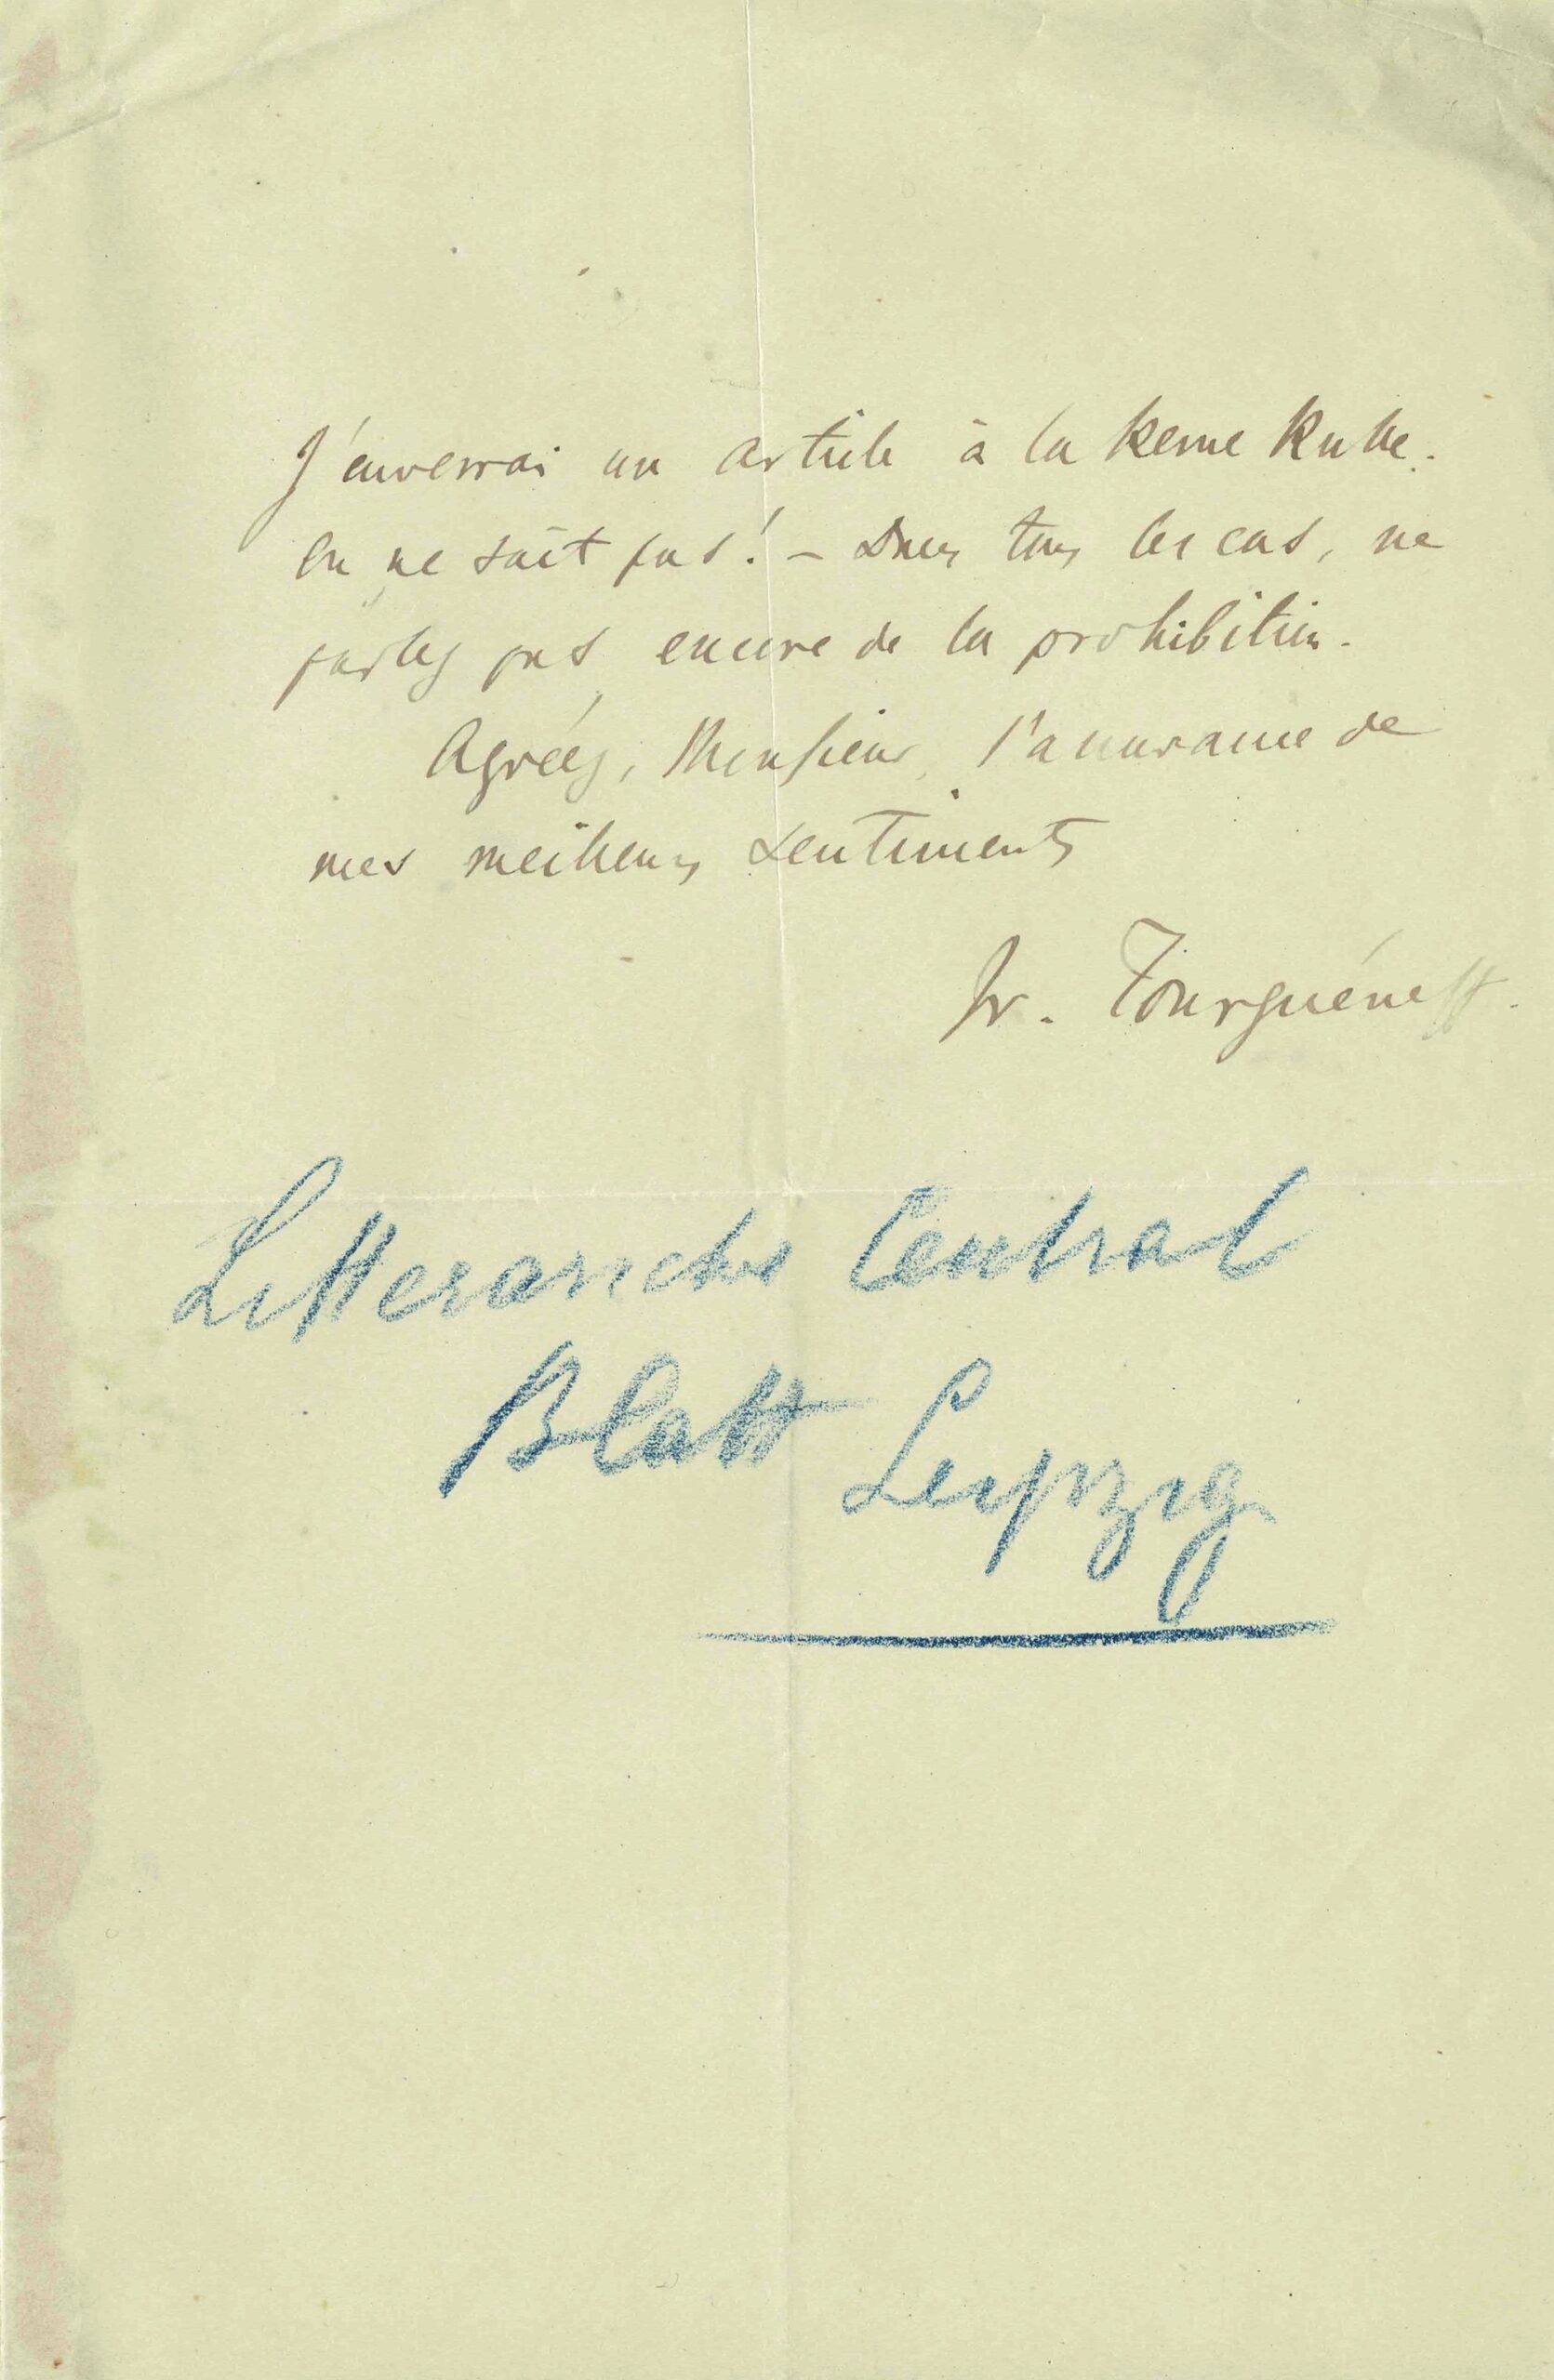 J'enverrai un article à la Revue Russe.
On ne sait pas! – Dans tous les cas, ne
parlez pas encore de la prohibition.
Agréez, Monsieur, l'assurance de
mes meilleurs sentiments
Iv. Tourguéneff.
Litterarisches Central
Blatt Leipzig